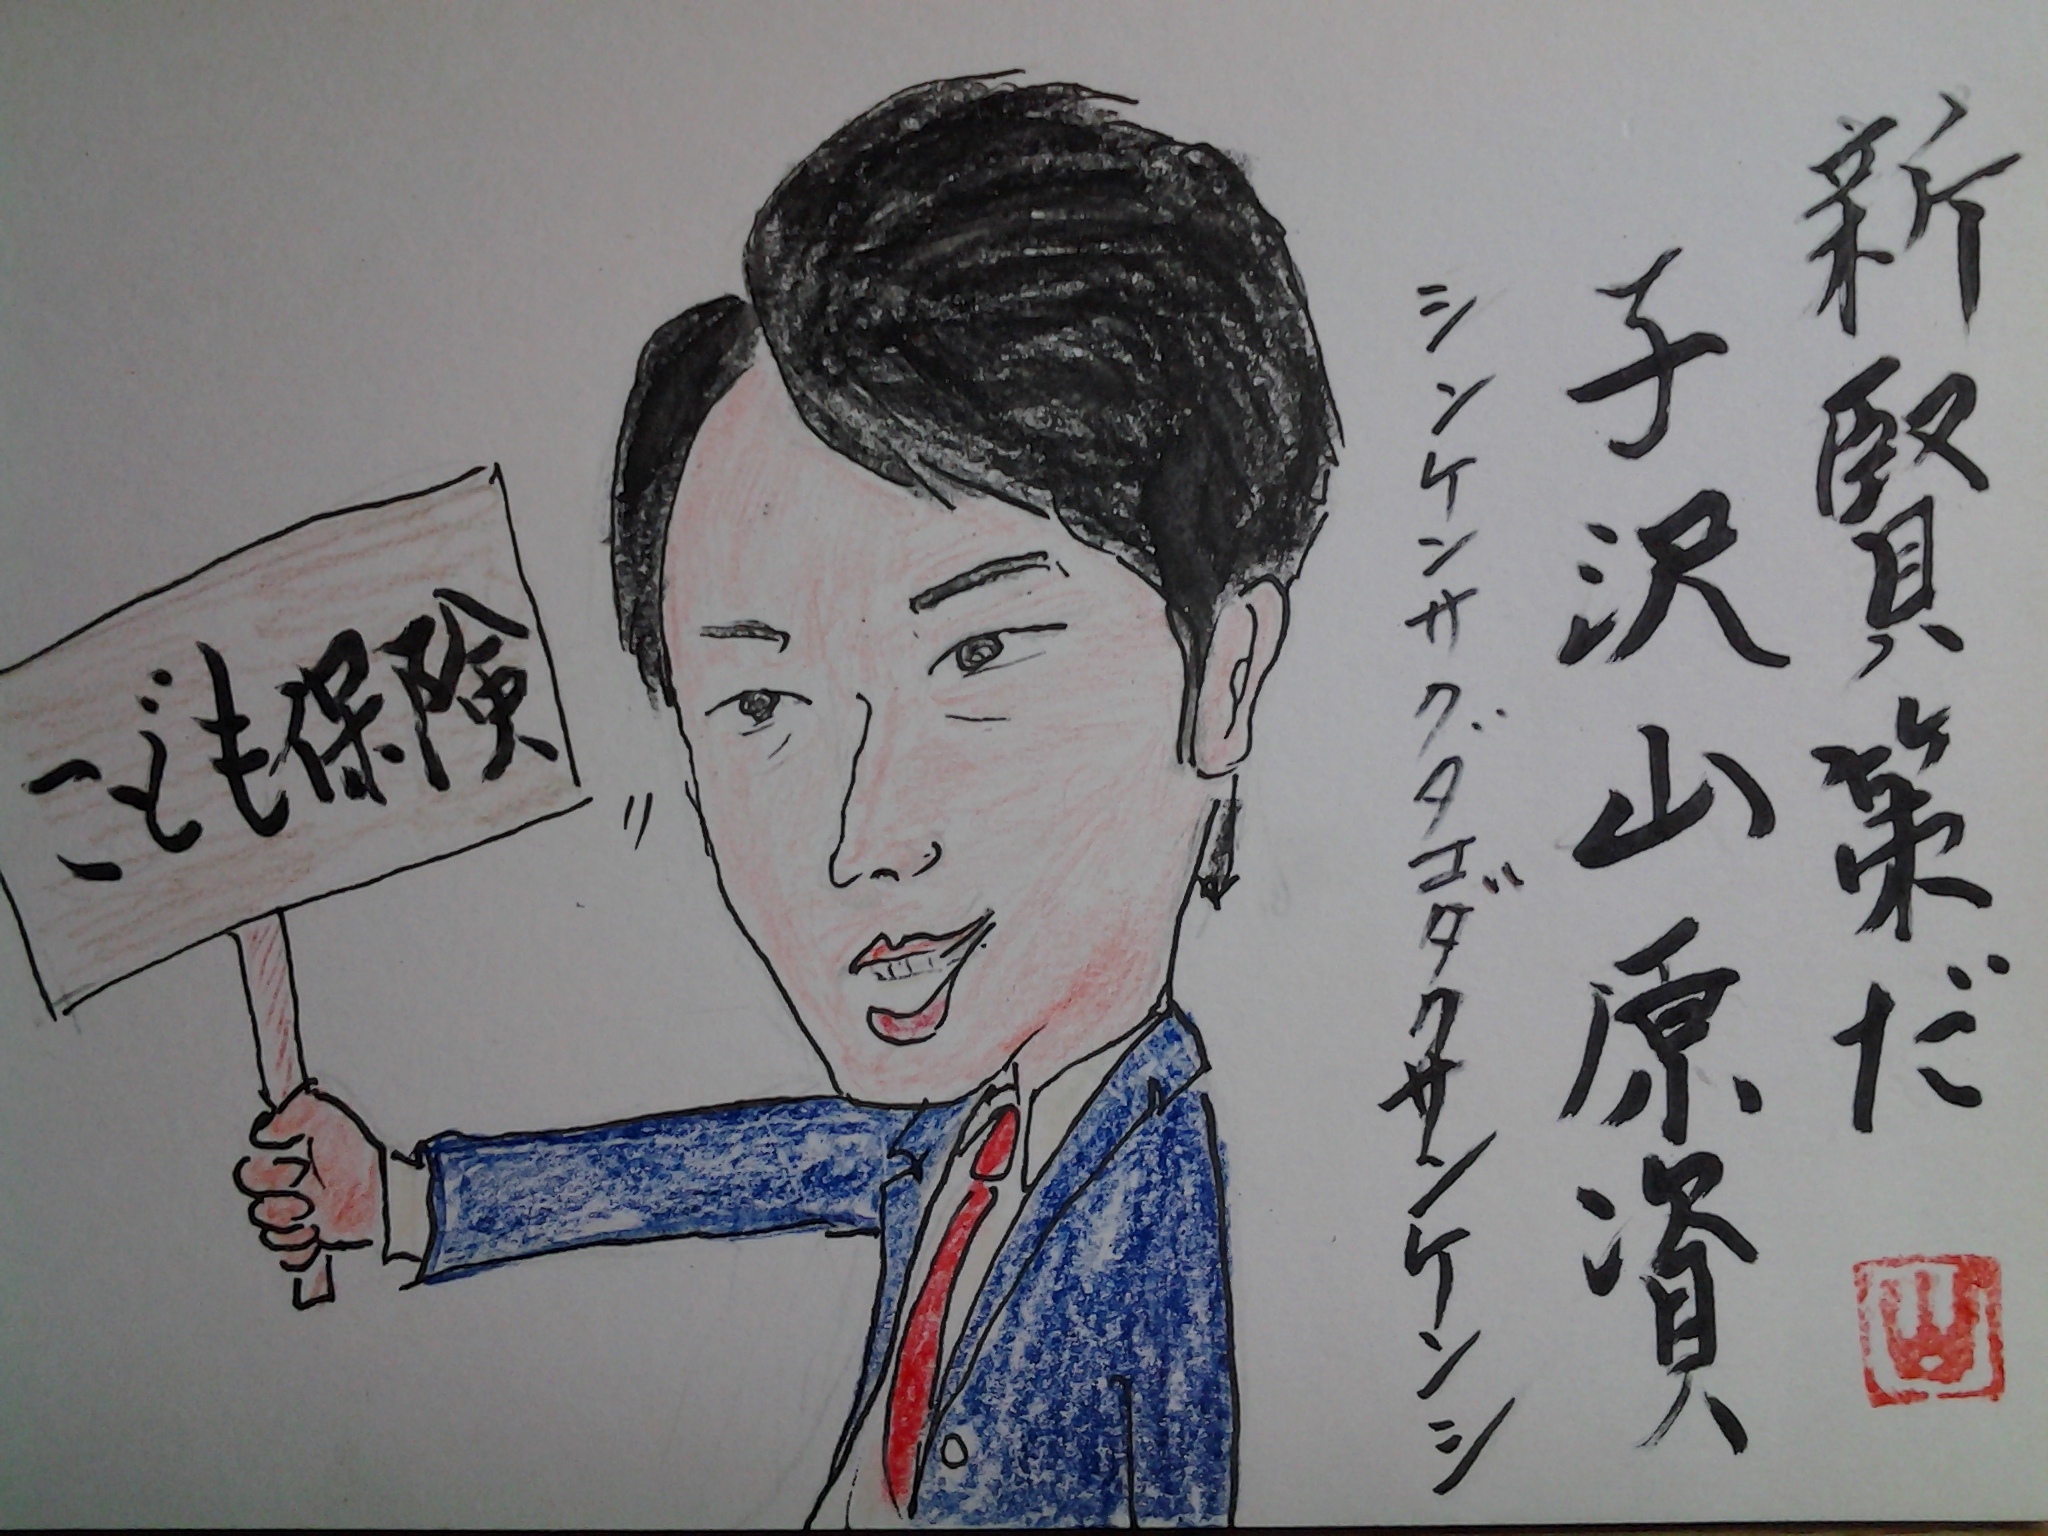 新賢策だ
子沢山原資
シンケンサクダコダクサンケンシ
こども保険